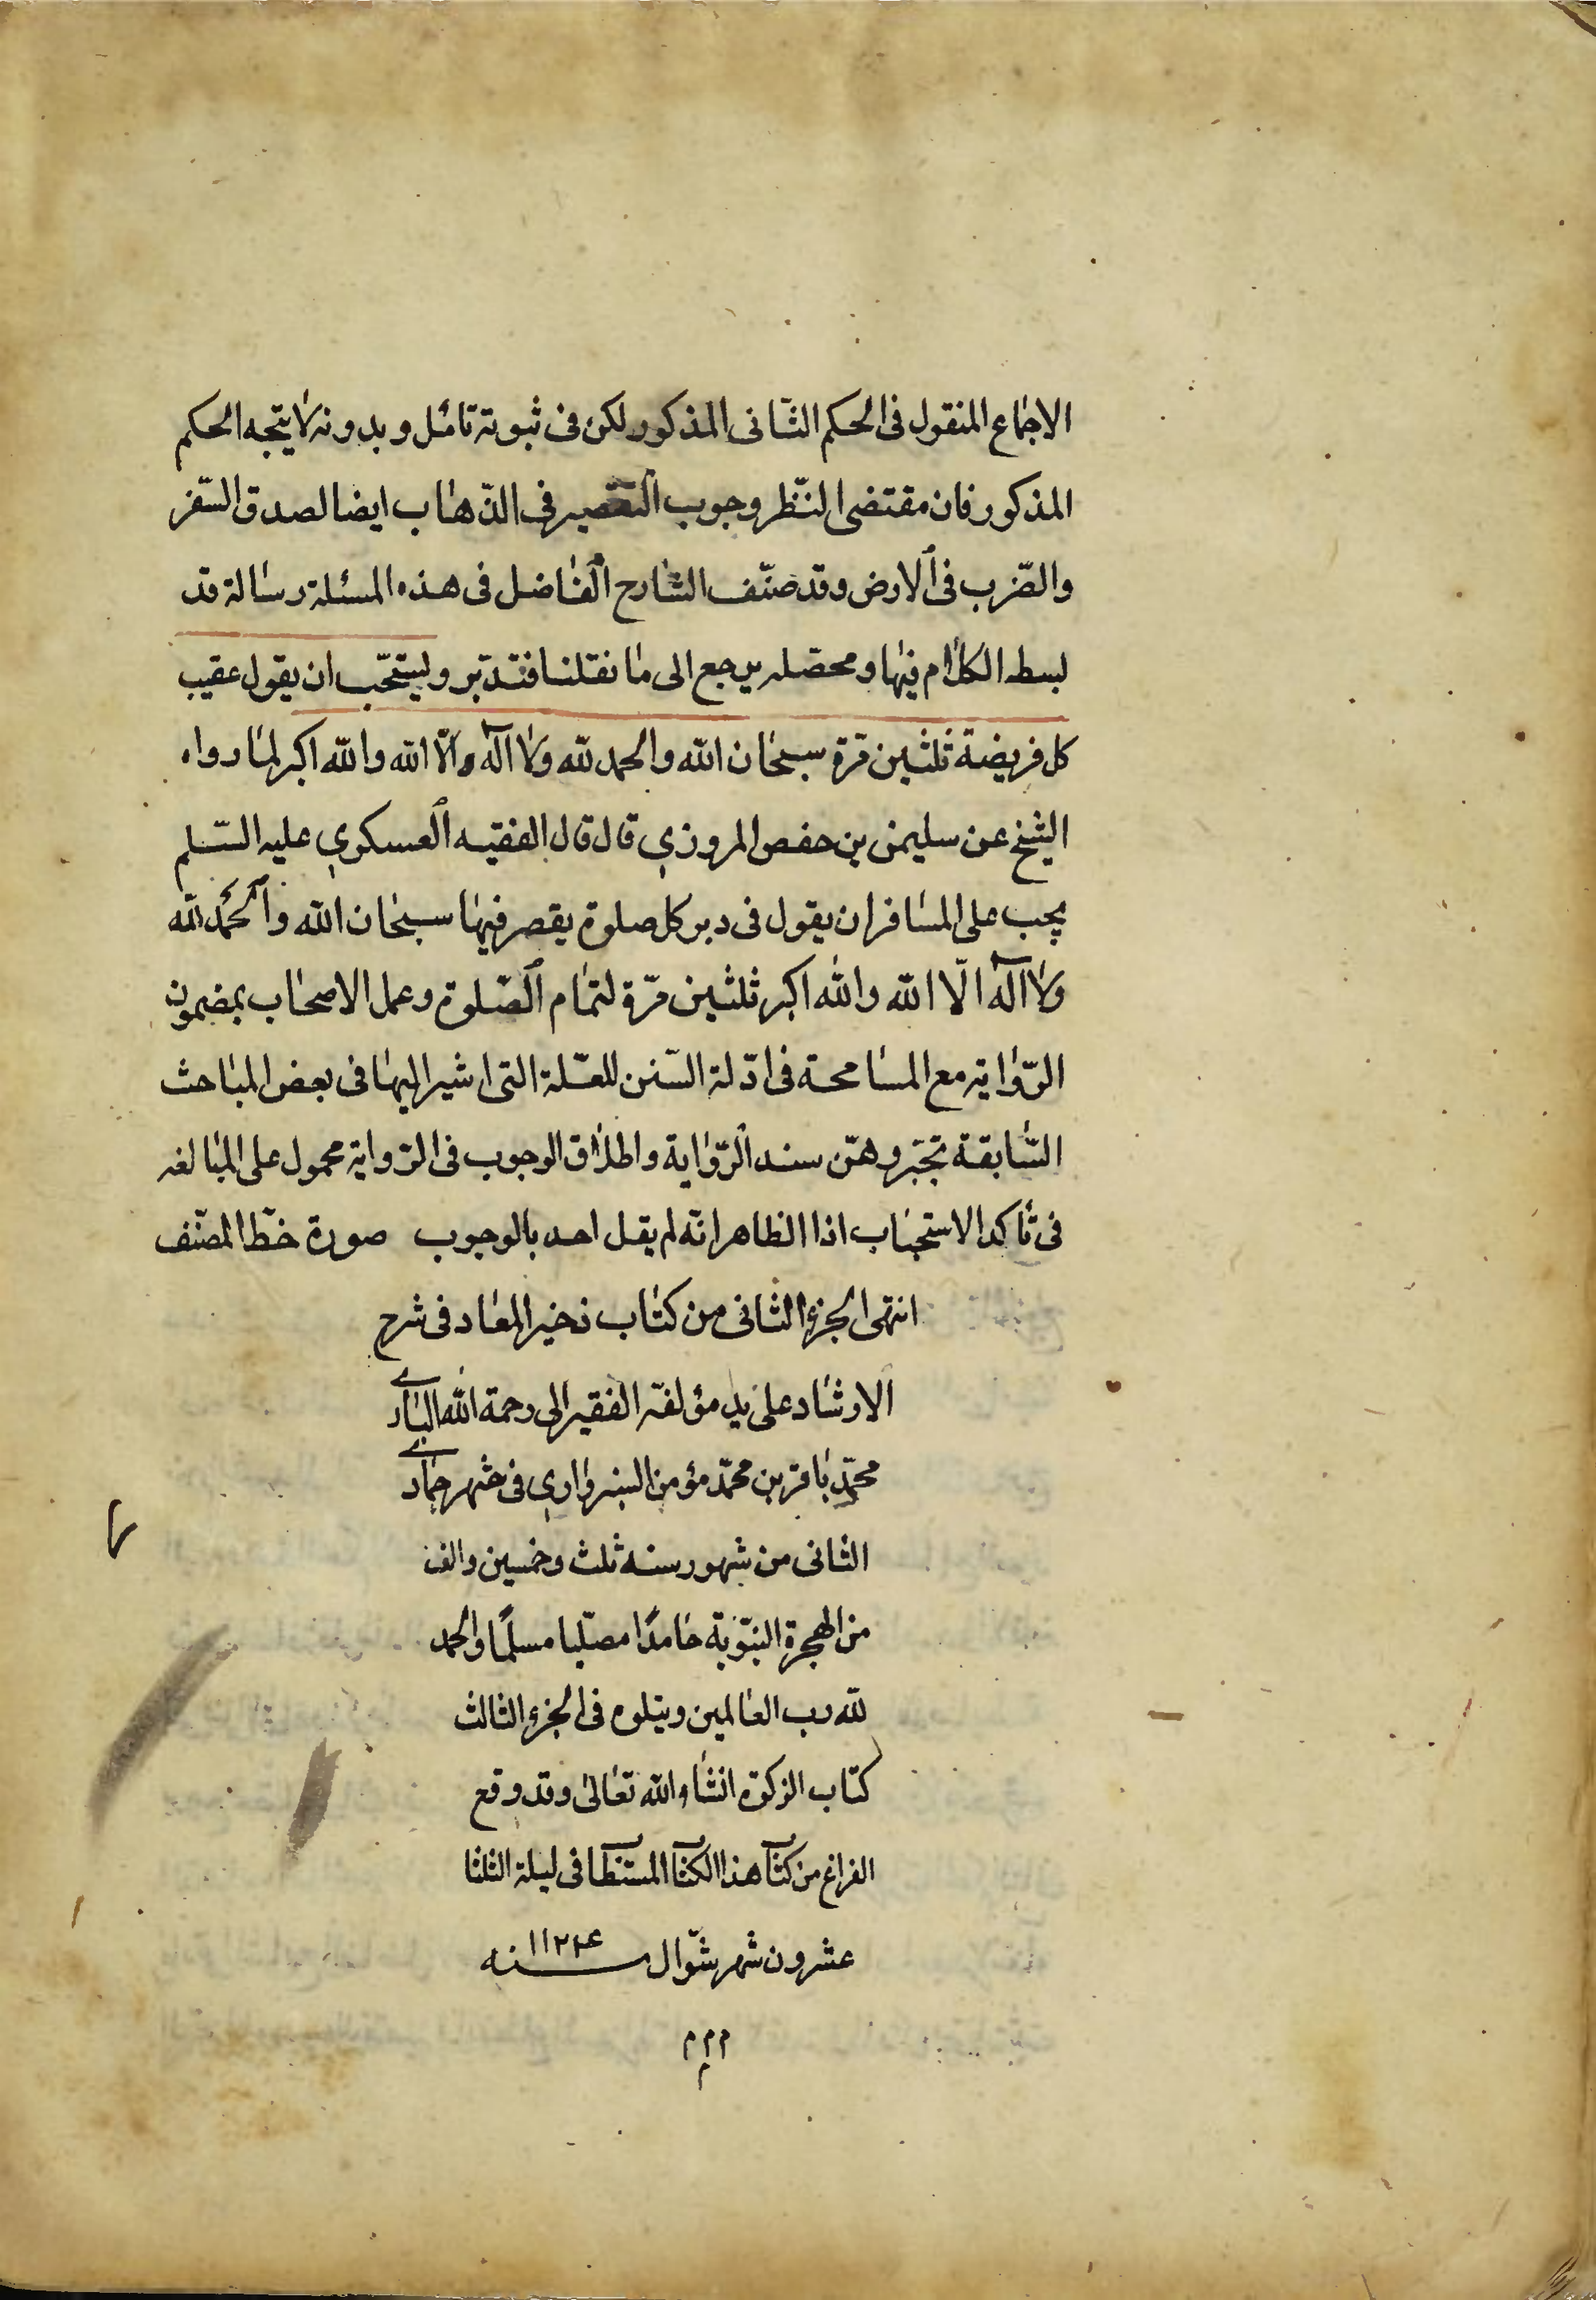 الاجماع المنقول فى الحكم الثانى المذكور لكن فى ثبوته تامل وبدونه لا يتجه الحكم
المذكور فان مقتضى النظر وجوب التقصير فى الذهاب ايضا لصدق السفر
والضرب فى الارض وقد صنف الشارح الفاضل فى هذه المسئلة رسالة قد
بسط الكلام فيها ومحصله يرجع الى ما نقلنا فتدبر ويستحب ان يقول عقيب
كل فريضة ثلثين مرة سبحان الله والحمد لله ولا اله والا الله والله اكبر لما رواه
الشيخ عن سليمن بن حفص المروزي قال قال الفقيه العسكري عليه السلم
يجب على المسافر ان يقول فى دبر كل صلوة يقصر فيها سبحان الله والحمد لله
ولا اله الا الله والله اكبر ثلثين مرة لتمام الصلوة وعمل الاصحاب بمضمون
الرواية مع المسامحة فى ادلة السنن للعلة التى اشير اليها فى بعض المباحث
السابقة تجبر وهن سند الرواية واطلاق الوجوب فى الرواية محمول على المبالغه
فى تاكد الاستحباب اذا الظاهر انه لم يقل احد بالوجوب صورة خط المصنف
انتهى الجزء الثانى من كتاب ذخير المعاد فى شرح
الارشاد على يد مؤلفه الفقير الى رحمة الله البارى
محمد باقر بن محمد مؤمن السبزواري فى شهر جمادى
الثانى من شهور سنه ثلث وخمسين والف
من الهجرة النبوية حامدا مصليا مسلما والحمد
لله رب العالمين ويتلوه فى الجزء الثالث
كتاب الزكوة انشاء الله تعالى وقد وقع
الفراغ من كتاب هذا الكتاب المستطاب فى ليلة الثلثا
عشرون شهر شوال سنه ١١٢٤
م م م
م